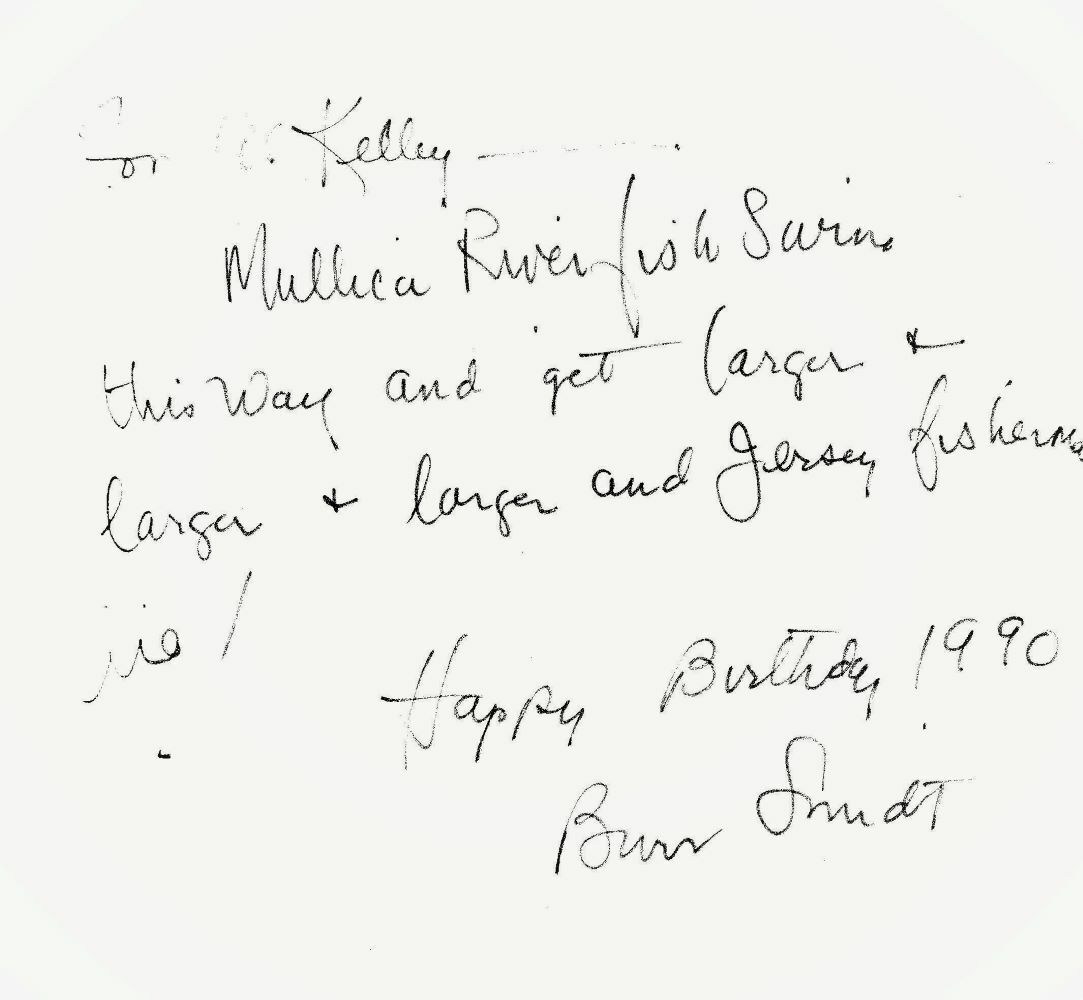 For Kelley —
Mullica River fish Swim
this Way and get larger +
larger + larger and Jersey
Happy Birthday 1990
Burr Smidt